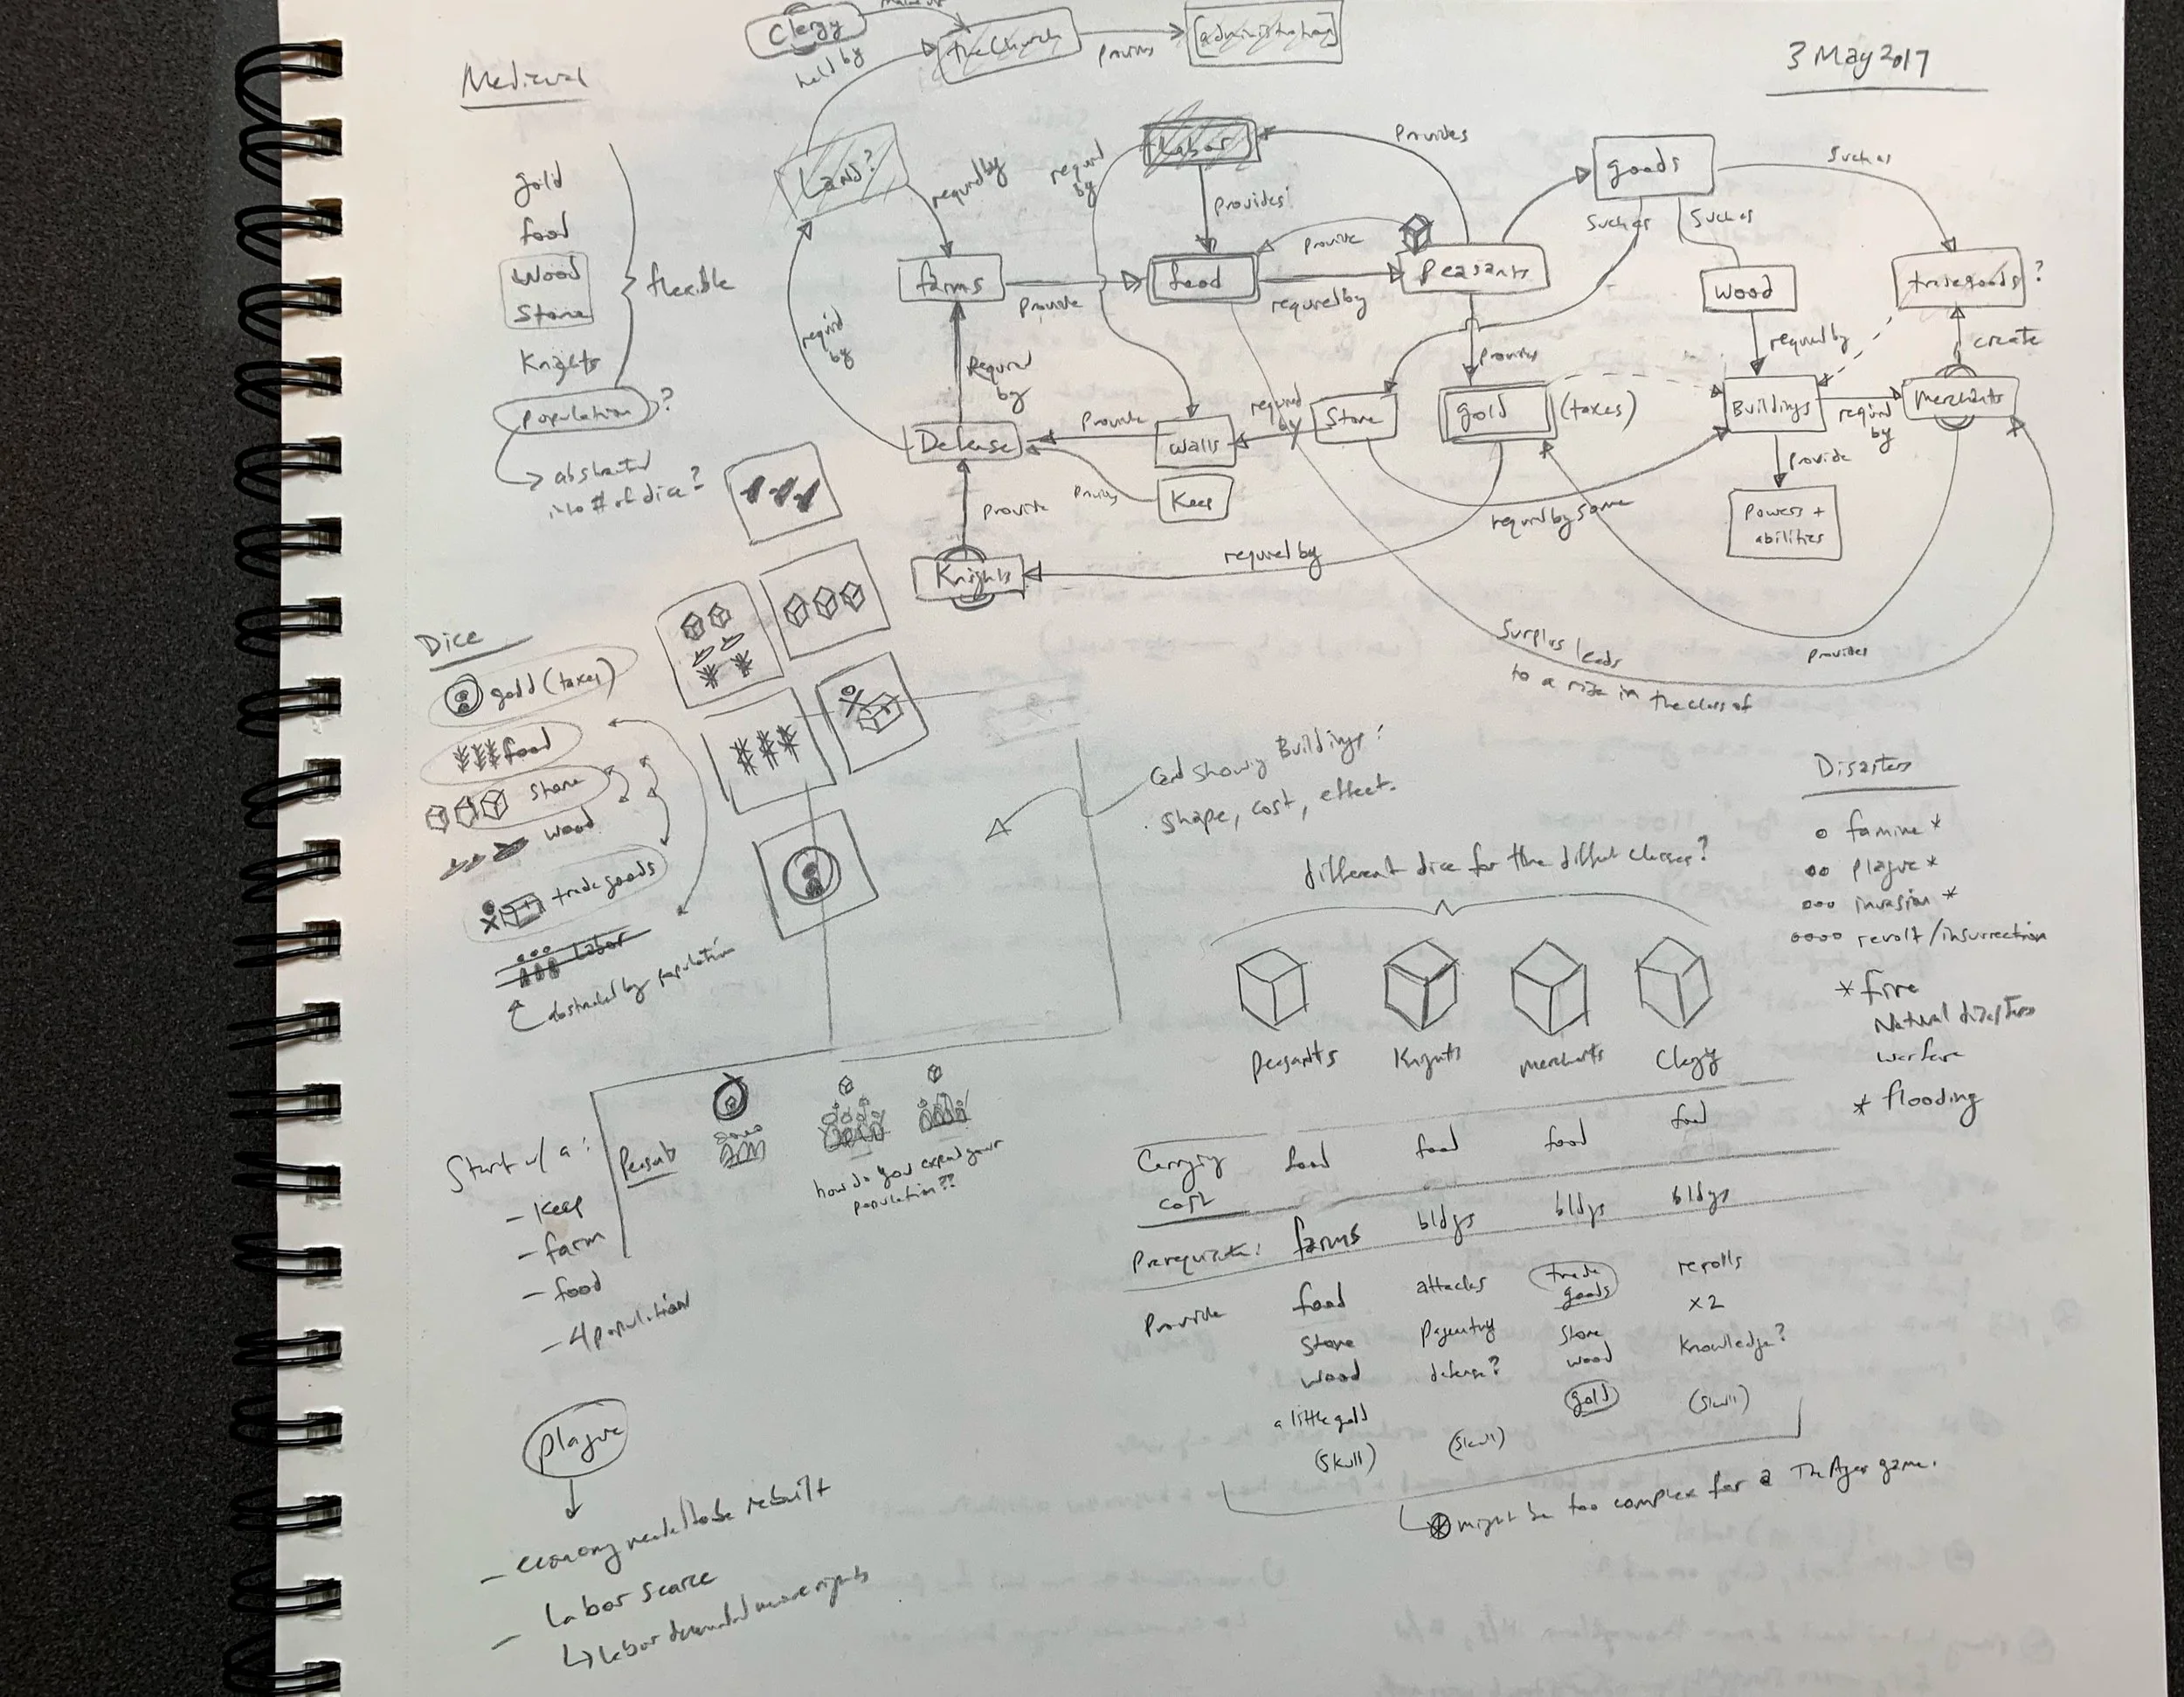 Medieval
3 May 2017
gold
food
Wood
Stone
Knights
flexible
population ?
abstracted
into # of dice?
Clergy
held by
the Church
Provides
[administration]
Land?
required by
required
by
Labor
Provides
Provides
required
by
farms
Provide
food
Provide
required by
Peasants
goods
such as
such as
such as
wood
tradegoods ?
required by
create
Required
by
Defense
Provide
Walls
required
by
Stone
Provides
gold
(taxes)
Buildings
required
by
Merchants
Provides
Keep
Provide
Powers +
abilities
Provide
Knights
required by
required by some
Surplus leads
to a rise in the class of
Provides
Dice
gold (taxes)
food
stone
wood
trade goods
Labor
abstracted by population
Card showing Buildings:
shape, cost, effect.
Disasters
famine *
plague *
invasion *
revolt/insurrection
* fire
Natural disasters
warfare
* flooding
different dice for the diffent classes?
Peasants
Knights
Merchants
Clergy
Carrying
cost
food
food
food
food
Prerequisite:
farms
bldgs
bldgs
bldgs
Provide
food
attacks
trade
goods
rerolls
x2
Stone
Pageantry
Stone
Knowledge?
wood
defense?
wood
a little gold
gold
(skull)
(skull)
(skull)
might be too complex for a Thru Ages game.
Start w/ a:
- Keep
- farm
- food
- 4 population
Peasants
how do you expand your
population??
plague
- economy needed to be rebuilt
- Labor scarce
Labor demanded more rights